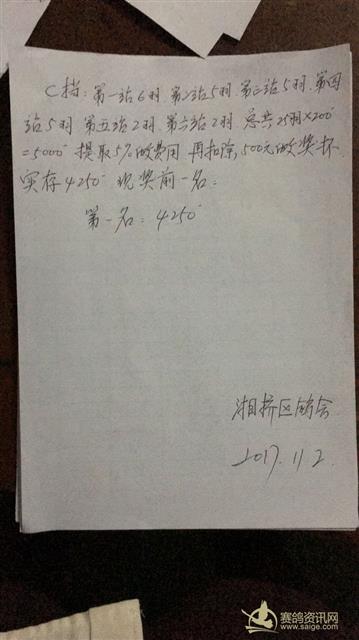 C档：第一站6羽.第二站5羽.第三站5羽.第四
站5羽 第五站2羽.第六站2羽 总共25羽×200
=5000 提取5%做费用 再扣除500元做奖杯
实存4250 现奖前一名：
第一名：4250
湘桥区鸽会
2017.11.2
赛鸽资讯网
www.saige.com